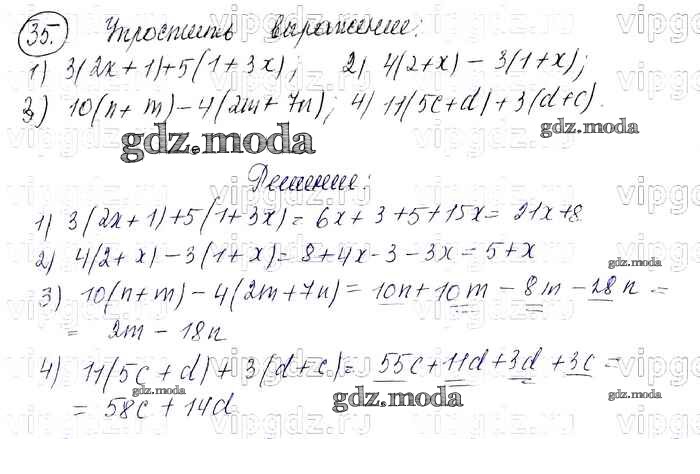 35. Упростить выражение:
1) 3(2x+1)+5(1+3x); 2) 4(2+x)-3(1+x);
3) 10(n+m)-4(2m+7n); 4) 11(5c+d)+3(d+c).
gdz.moda
gdz.moda
Решение:
1) 3(2x+1)+5(1+3x)= 6x+3+5+15x= 21x+8
2) 4(2+x)-3(1+x)= 8+4x-3-3x=5+x
gdz.moda
3) 10(n+m)-4(2m+7n)= 10n+10m-8m-28n =
= 2m-18n
4) 11(5c+d)+3(d+c)= 55c+11d+3d+3c =
gdz.moda
gdz.moda
gdz.moda
= 58c+14d
vipgdz.ru